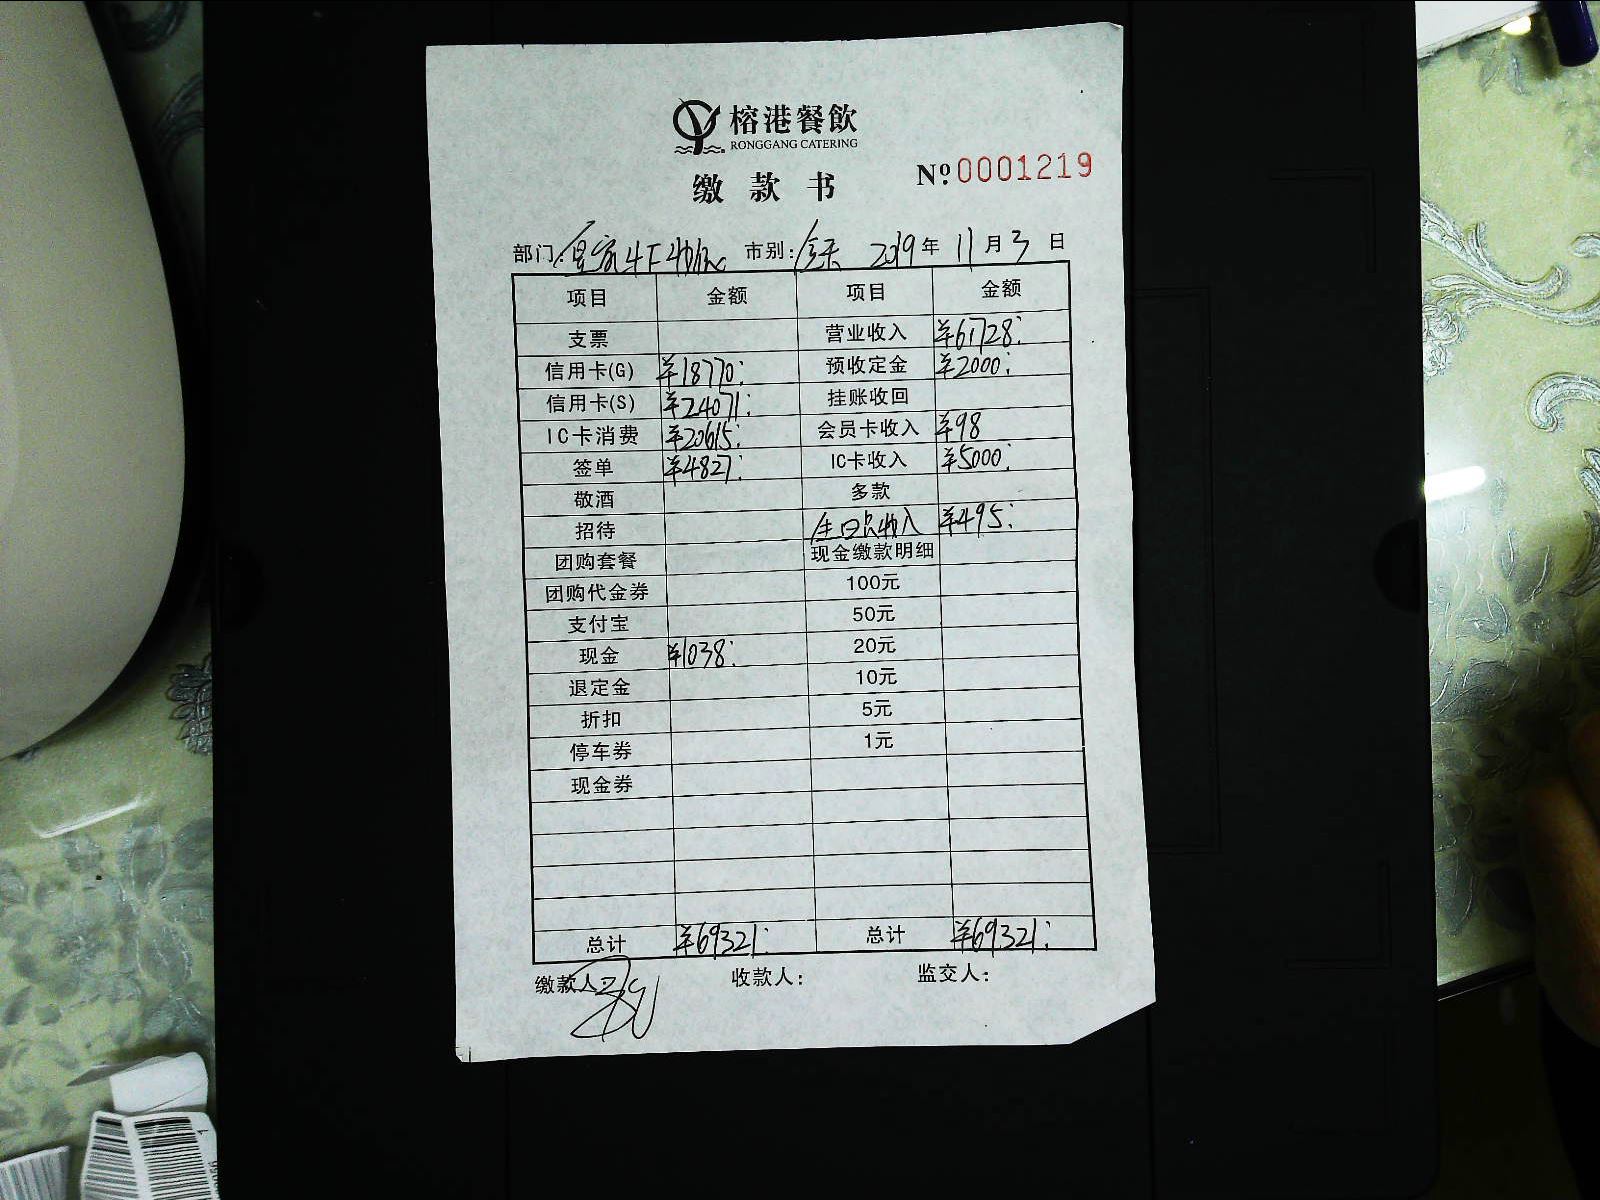 榕港餐飲
RONGGANG CATERING
缴款书 Nº 0001219
部门: 市别: 全天 2019年11月3日
项目 金额 项目 金额
支票 营业收入 ¥61728:
信用卡(G) ¥18770: 预收定金 ¥2000:
信用卡(S) ¥24071: 挂账收回
IC卡消费 ¥20615: 会员卡收入 ¥98
签单 ¥4827: IC卡收入 ¥5000:
敬酒 多款
招待 收入 ¥495:
团购套餐 现金缴款明细
团购代金券 100元
支付宝 50元
现金 ¥1038: 20元
退定金 10元
折扣 5元
停车券 1元
现金券
总计 ¥69321: 总计 ¥69321:
缴款人: 收款人: 监交人: